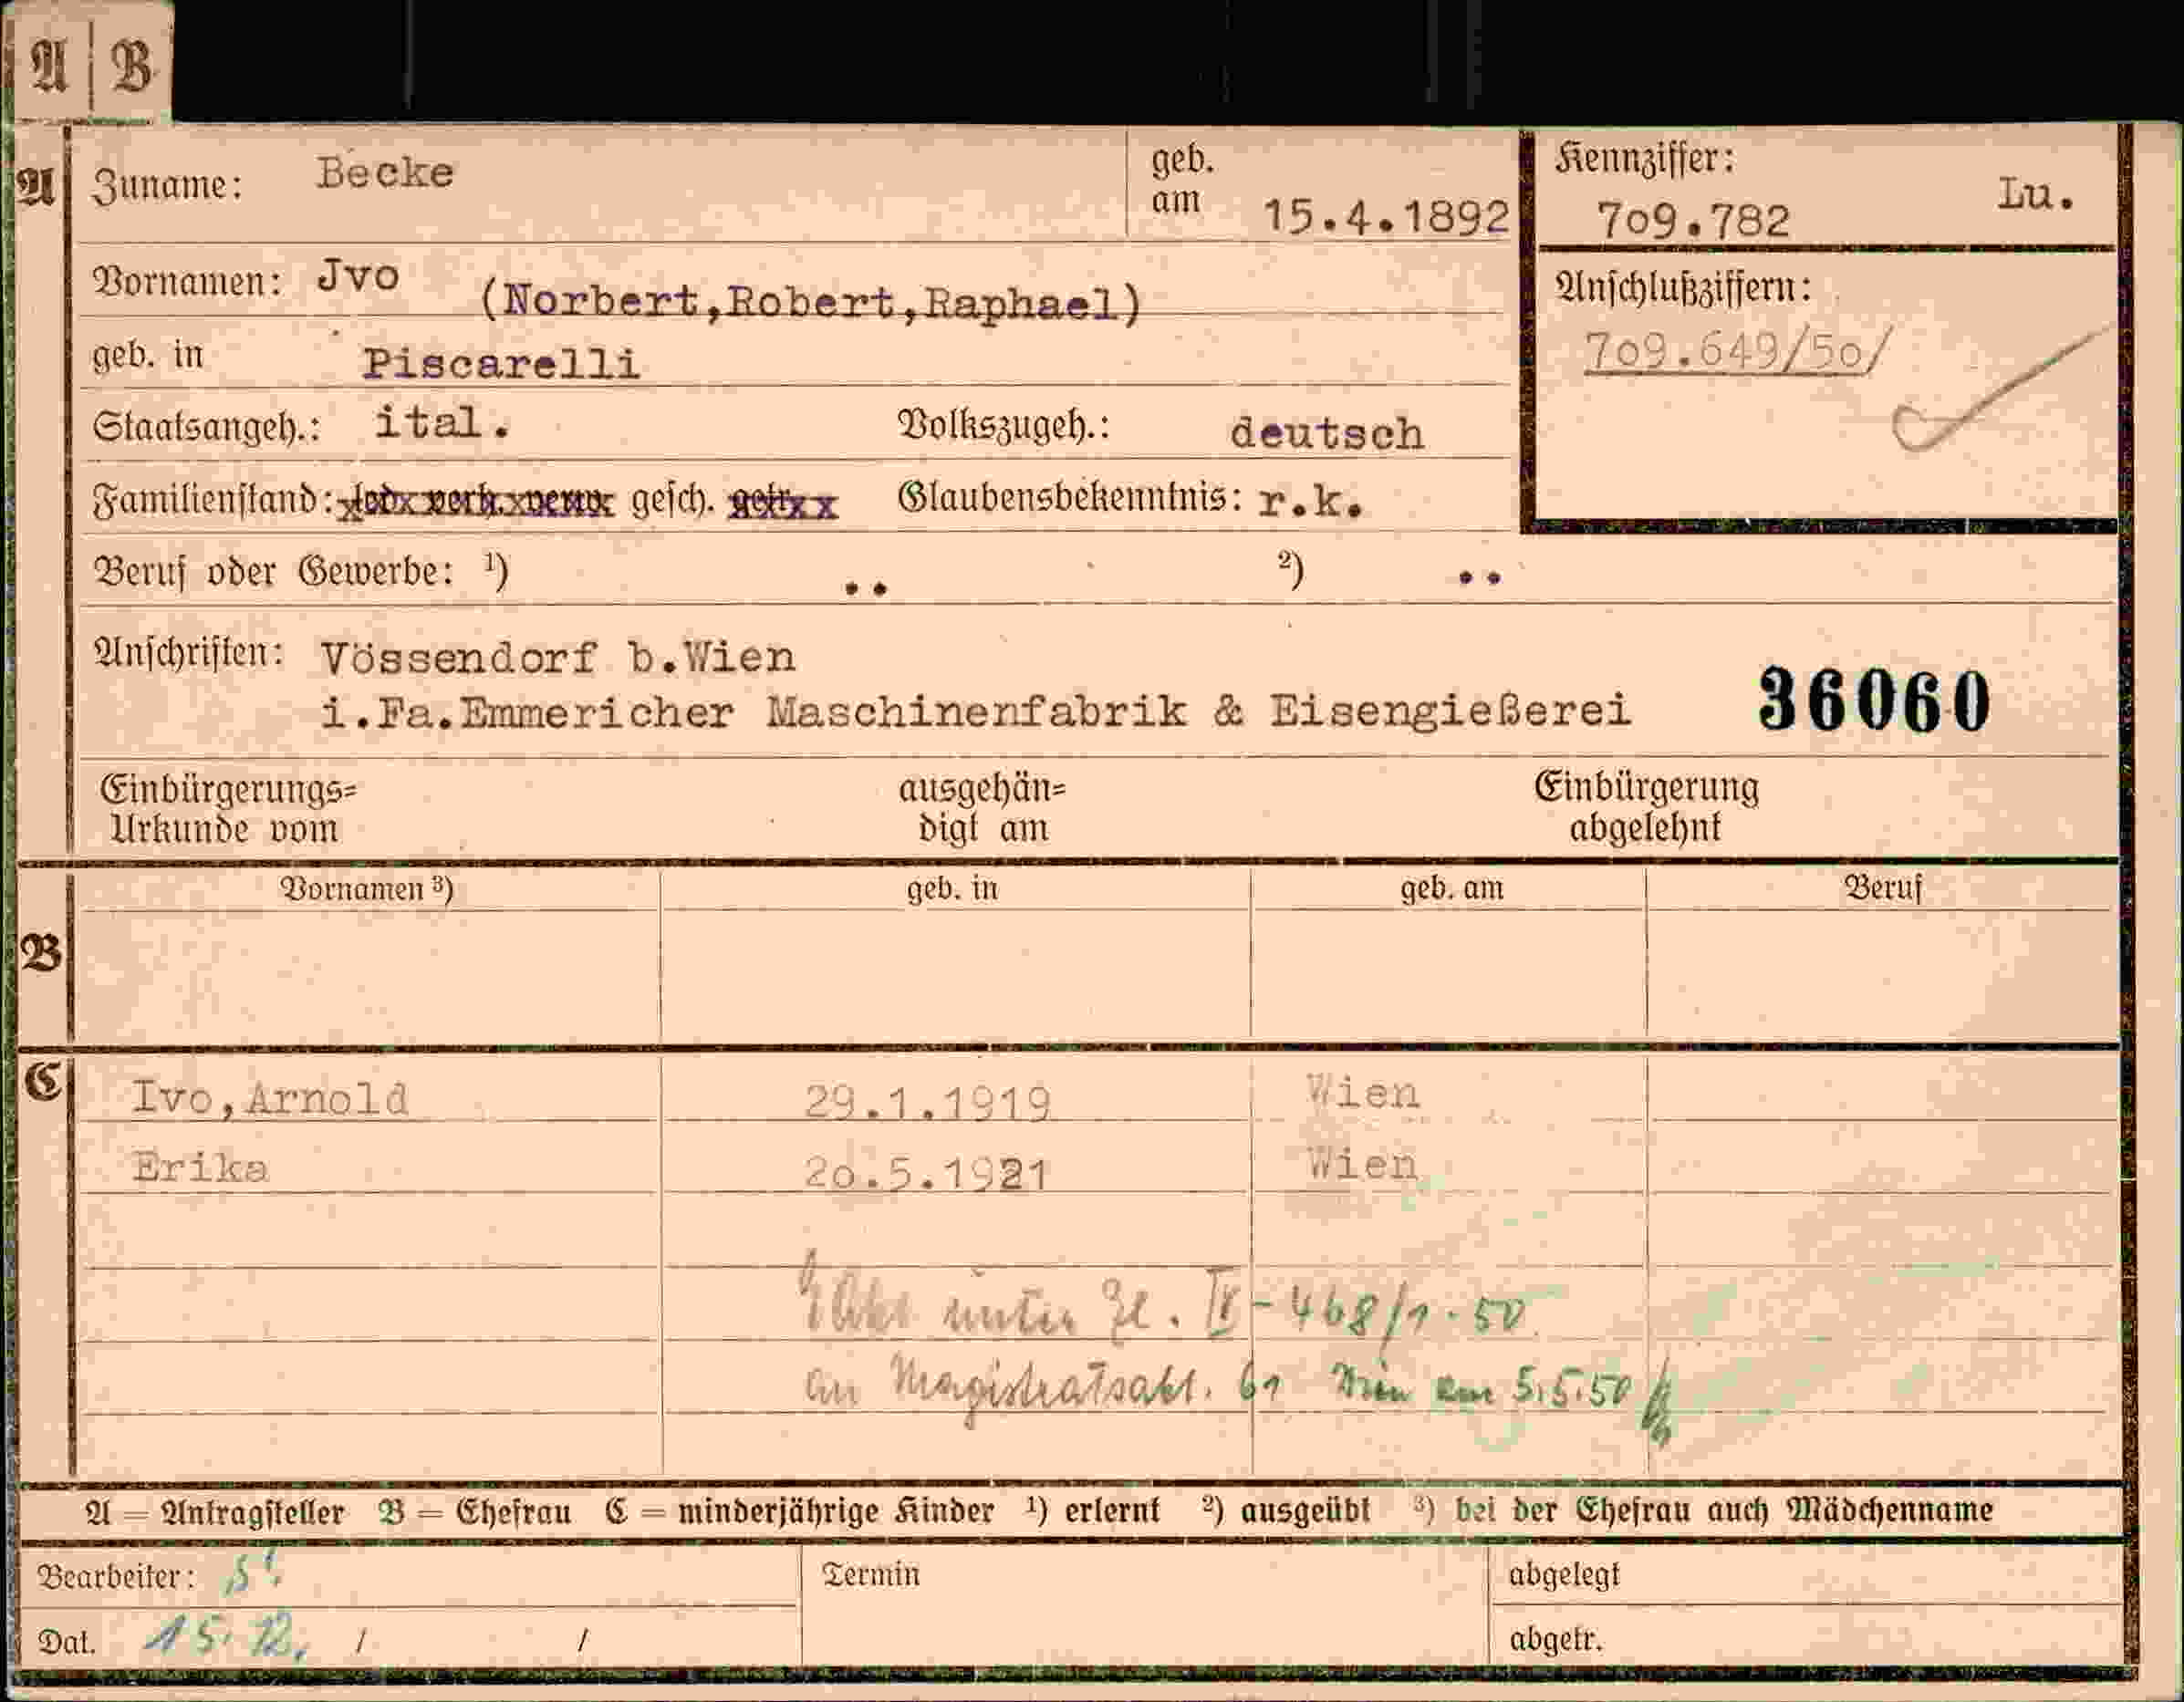 A | B
A Zuname: Becke geb. am 15.4.1892 Kennziffer: 709.782 Lu.
Vornamen: Jvo (Norbert,Robert,Raphael) Anschlußziffern:
709.649/50/
geb. in Piscarelli
Staatsangeh.: ital. Volkszugeh.: deutsch
Familienstand: led. verh. verw. gesch. getr. Glaubensbekenntnis: r.k.
Beruf oder Gewerbe: ¹) .. ²) ..
Anschriften: Vössendorf b.Wien
i.Fa.Emmericher Maschinenfabrik & Eisengießerei 36060
Einbürgerungs= Urkunde vom ausgehän= digt am Einbürgerung abgelehnt
Vornamen ³) geb. in geb. am Beruf
B
C Ivo,Arnold 29.1.1919 Wien
Erika 20.5.1921 Wien
unter Zl. IV-468/1-50
an Magistratsabt. 61 Wien am 5.5.50
A = Antragsteller B = Ehefrau C = minderjährige Kinder ¹) erlernt ²) ausgeübt ³) bei der Ehefrau auch Mädchenname
Bearbeiter: Termin abgelegt
Dat. 15.12. / / abgetr.